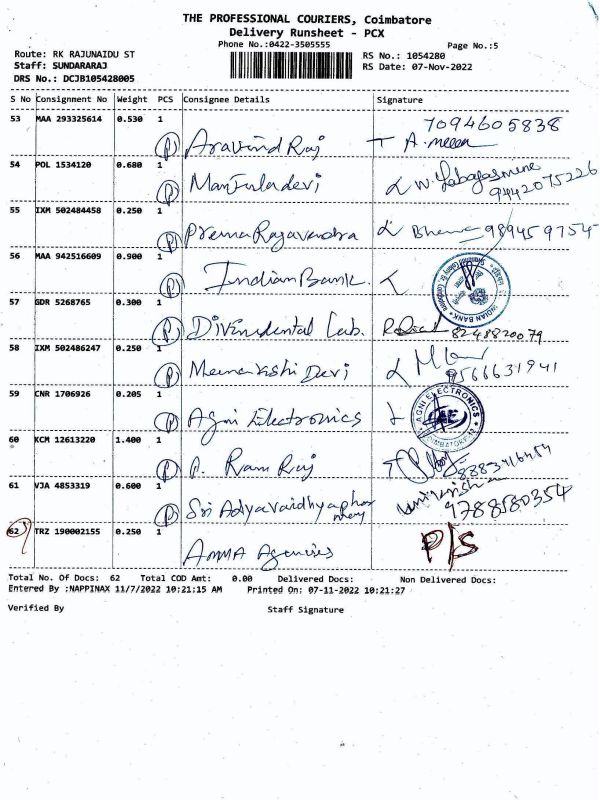 THE PROFESSIONAL COURIERS, Coimbatore
Delivery Runsheet - PCX
Phone No.:0422-3505555
Page No.:5
Route: RK RAJUNAIDU ST
RS No.: 1054280
Staff: SUNDARARAJ
RS Date: 07-Nov-2022
DRS No.: DCJB105428005
S No Consignment No Weight PCS Consignee Details Signature
53 MAA 293325614 0.530 1
7094605838
(P) Aravind Raj
54 POL 1534120 0.680 1
(P) Manjuladevi
9442075226
55 IXM 502484458 0.250 1
(P) Prema Ragavendra
9894597754
56 MAA 942516609 0.900 1
(P) Indian Bank.
INDIAN BANK
57 GDR 5268765 0.300 1
(P) Divinedental Lab.
8248820079
58 IXM 502486247 0.250 1
(P) Meenakshi Devi
9566631941
59 CNR 1706926 0.205 1
(P) Agni Electronics
AGNI ELECTRONICS
COIMBATORE
60 KCM 12613220 1.400 1
(P) A. Ram Raj
8883416454
61 VJA 4853319 0.600 1
(P) Sri Adyavaidhyaphar
macy
9788580354
62 TRZ 190002155 0.250 1
Amma Agencies
P/S
Total No. Of Docs: 62 Total COD Amt: 0.00 Delivered Docs: Non Delivered Docs:
Entered By :NAPPINAX 11/7/2022 10:21:15 AM Printed On: 07-11-2022 10:21:27
Verified By Staff Signature